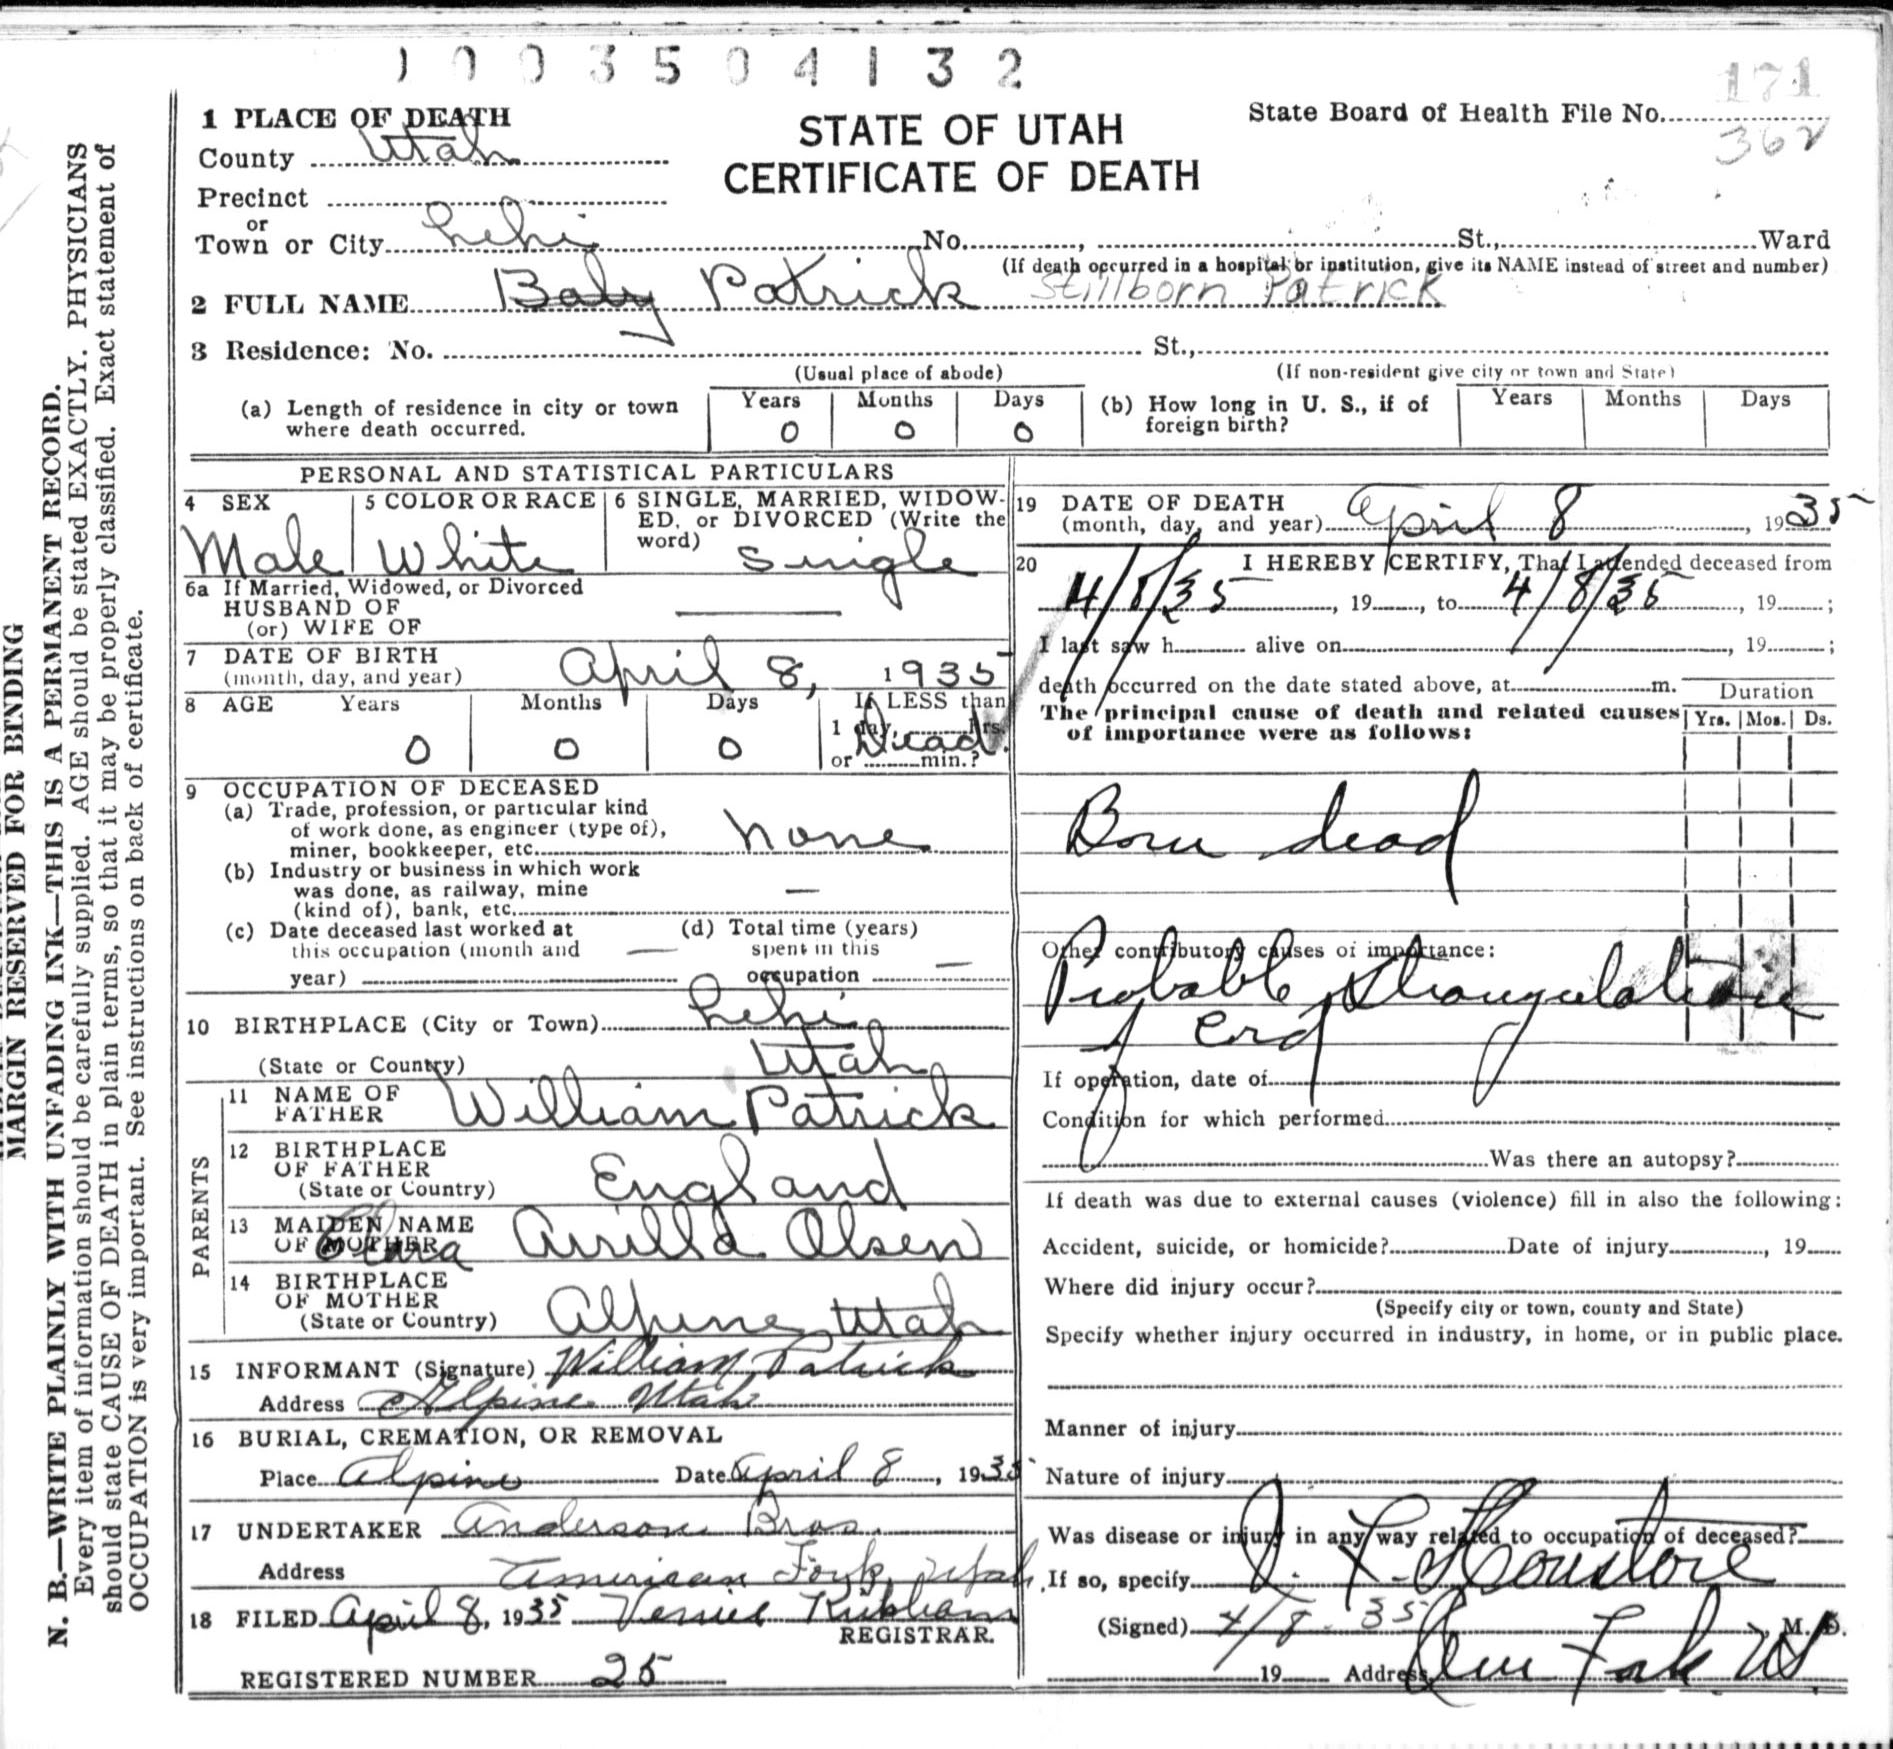 1003504132
171
1 PLACE OF DEATH
County Utah
STATE OF UTAH
CERTIFICATE OF DEATH
State Board of Health File No.
362
Precinct
or
Town or City Lehi No. , St., Ward
(If death occurred in a hospital or institution, give its NAME instead of street and number)
2 FULL NAME Baby Patrick Stillborn Patrick
3 Residence: No. St.,
(Usual place of abode) (If non-resident give city or town and State)
(a) Length of residence in city or town where death occurred. Years 0 Months 0 Days 0
(b) How long in U. S., if of foreign birth? Years Months Days
PERSONAL AND STATISTICAL PARTICULARS
4 SEX Male
5 COLOR OR RACE White
6 SINGLE, MARRIED, WIDOW-
ED, or DIVORCED (Write the
word) Single
6a If Married, Widowed, or Divorced
HUSBAND OF
(or) WIFE OF
7 DATE OF BIRTH
(month, day, and year) April 8, 1935
8 AGE Years 0 Months 0 Days 0 If LESS than
1 day, hrs.
Dead.
or min.?
9 OCCUPATION OF DECEASED
(a) Trade, profession, or particular kind
of work done, as engineer (type of),
miner, bookkeeper, etc. None
(b) Industry or business in which work
was done, as railway, mine —
(kind of), bank, etc.
(c) Date deceased last worked at
this occupation (month and —
year)
(d) Total time (years)
spent in this
occupation —
10 BIRTHPLACE (City or Town) Lehi
(State or Country) Utah
PARENTS
11 NAME OF
FATHER William Patrick
12 BIRTHPLACE
OF FATHER
(State or Country) England
13 MAIDEN NAME
OF MOTHER Clara Arrilla Olsen
14 BIRTHPLACE
OF MOTHER
(State or Country) Alpine Utah
15 INFORMANT (Signature) William Patrick
Address Alpine Utah
16 BURIAL, CREMATION, OR REMOVAL
Place Alpine Date April 8, 1935
17 UNDERTAKER Anderson Bros.
Address American Fork, Utah
18 FILED April 8, 1935
REGISTRAR.
REGISTERED NUMBER 25
19 DATE OF DEATH
(month, day, and year) April 8, 1935
20 I HEREBY CERTIFY, That I attended deceased from
4/8/35, 19 , to 4/8/35, 19 ;
I last saw h alive on , 19 ;
death occurred on the date stated above, at m.
The principal cause of death and related causes
of importance were as follows:
Duration
Yrs. Mos. Ds.
Born dead
Other contributory causes of importance:
Probable Strangulation
of cord
If operation, date of
Condition for which performed
Was there an autopsy?
If death was due to external causes (violence) fill in also the following:
Accident, suicide, or homicide? Date of injury , 19
Where did injury occur?
(Specify city or town, county and State)
Specify whether injury occurred in industry, in home, or in public place.
Manner of injury
Nature of injury
Was disease or injury in any way related to occupation of deceased?
If so, specify
(Signed) 4/8 35 , M. D.
19 Address Am Fork Ut
MARGIN RESERVED FOR BINDING
N. B.—WRITE PLAINLY WITH UNFADING INK—THIS IS A PERMANENT RECORD.
Every item of information should be carefully supplied. AGE should be stated EXACTLY. PHYSICIANS
should state CAUSE OF DEATH in plain terms, so that it may be properly classified. Exact statement of
OCCUPATION is very important. See instructions on back of certificate.